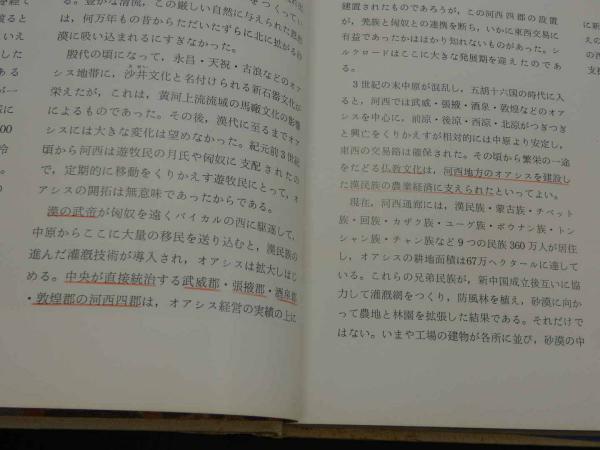 る。豊かな清流,この厳しい自然に与えられた恩恵
は,何万年もの昔からただいたずらに北に拡がる砂
漠に吸い込まれるにすぎなかった。
殷代の頃になって,永昌・天祝・古浪などのオア
シス地帯に,沙井文化と名付けられる新石器文化が
栄えたが,これは,黄河上流流域の馬廠文化の影響
によるものであった。その後,漢代に至るまでオア
シスには大きな変化は望めなかった。紀元前3世紀
頃から河西は遊牧民の月氏や匈奴に支配されたの
で,定期的に移動をくりかえす遊牧民にとって,オ
アシスの開拓は無意味であったからである。
漢の武帝が匈奴を遠くバイカルの西に駆逐して,
中原からここに大量の移民を送り込むと,漢民族の
進んだ灌漑技術が導入され,オアシスは拡大しはじ
める。中央が直接統治する武威郡・張掖郡・酒泉郡
・敦煌郡の河西四郡は,オアシス経営の実績の上に
建置されたものであろうが,この河西四郡の設置
が,羌族と匈奴との連携を断ち,いかに東西交易に
有益であったかははかり知れないものがあった。シ
ルクロードはここに大きな発展期を迎えたのであ
る。
3世紀の末中原が混乱し,五胡十六国の時代に入
ると,河西では武威・張掖・酒泉・敦煌などのオア
シスを中心に,前涼・後涼・西涼・北涼がつぎつぎ
と興亡をくりかえすが相対的には中原より安定し,
東西の交易路は確保された。その頃から繁栄の一途
をたどる仏教文化は,河西地方のオアシスを建設し
た漢民族の農業経済に支えられたといってよい。
現在,河西通廊には,漢民族・蒙古族・チベット
族・回族・カザク族・ユーグ族・ボウナン族・トン
シャン族・チャン族など9つの民族360万人が居住
し,オアシスの耕地面積は67万ヘクタールに達して
いる。これらの兄弟民族が,新中国成立後互いに協
力して灌漑網をつくり,防風林を植え,砂漠に向か
って農地と林園を拡張した結果である。それだけで
はない。いまや工場の建物が各所に並び,砂漠の中